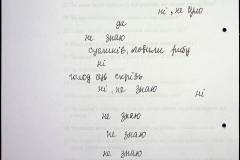 ні, не було
да
не знаю
сусликів, ловили рибу
ні
голод був скрізь
ні, не знаю
ні
не знаю
не знаю
не знаю